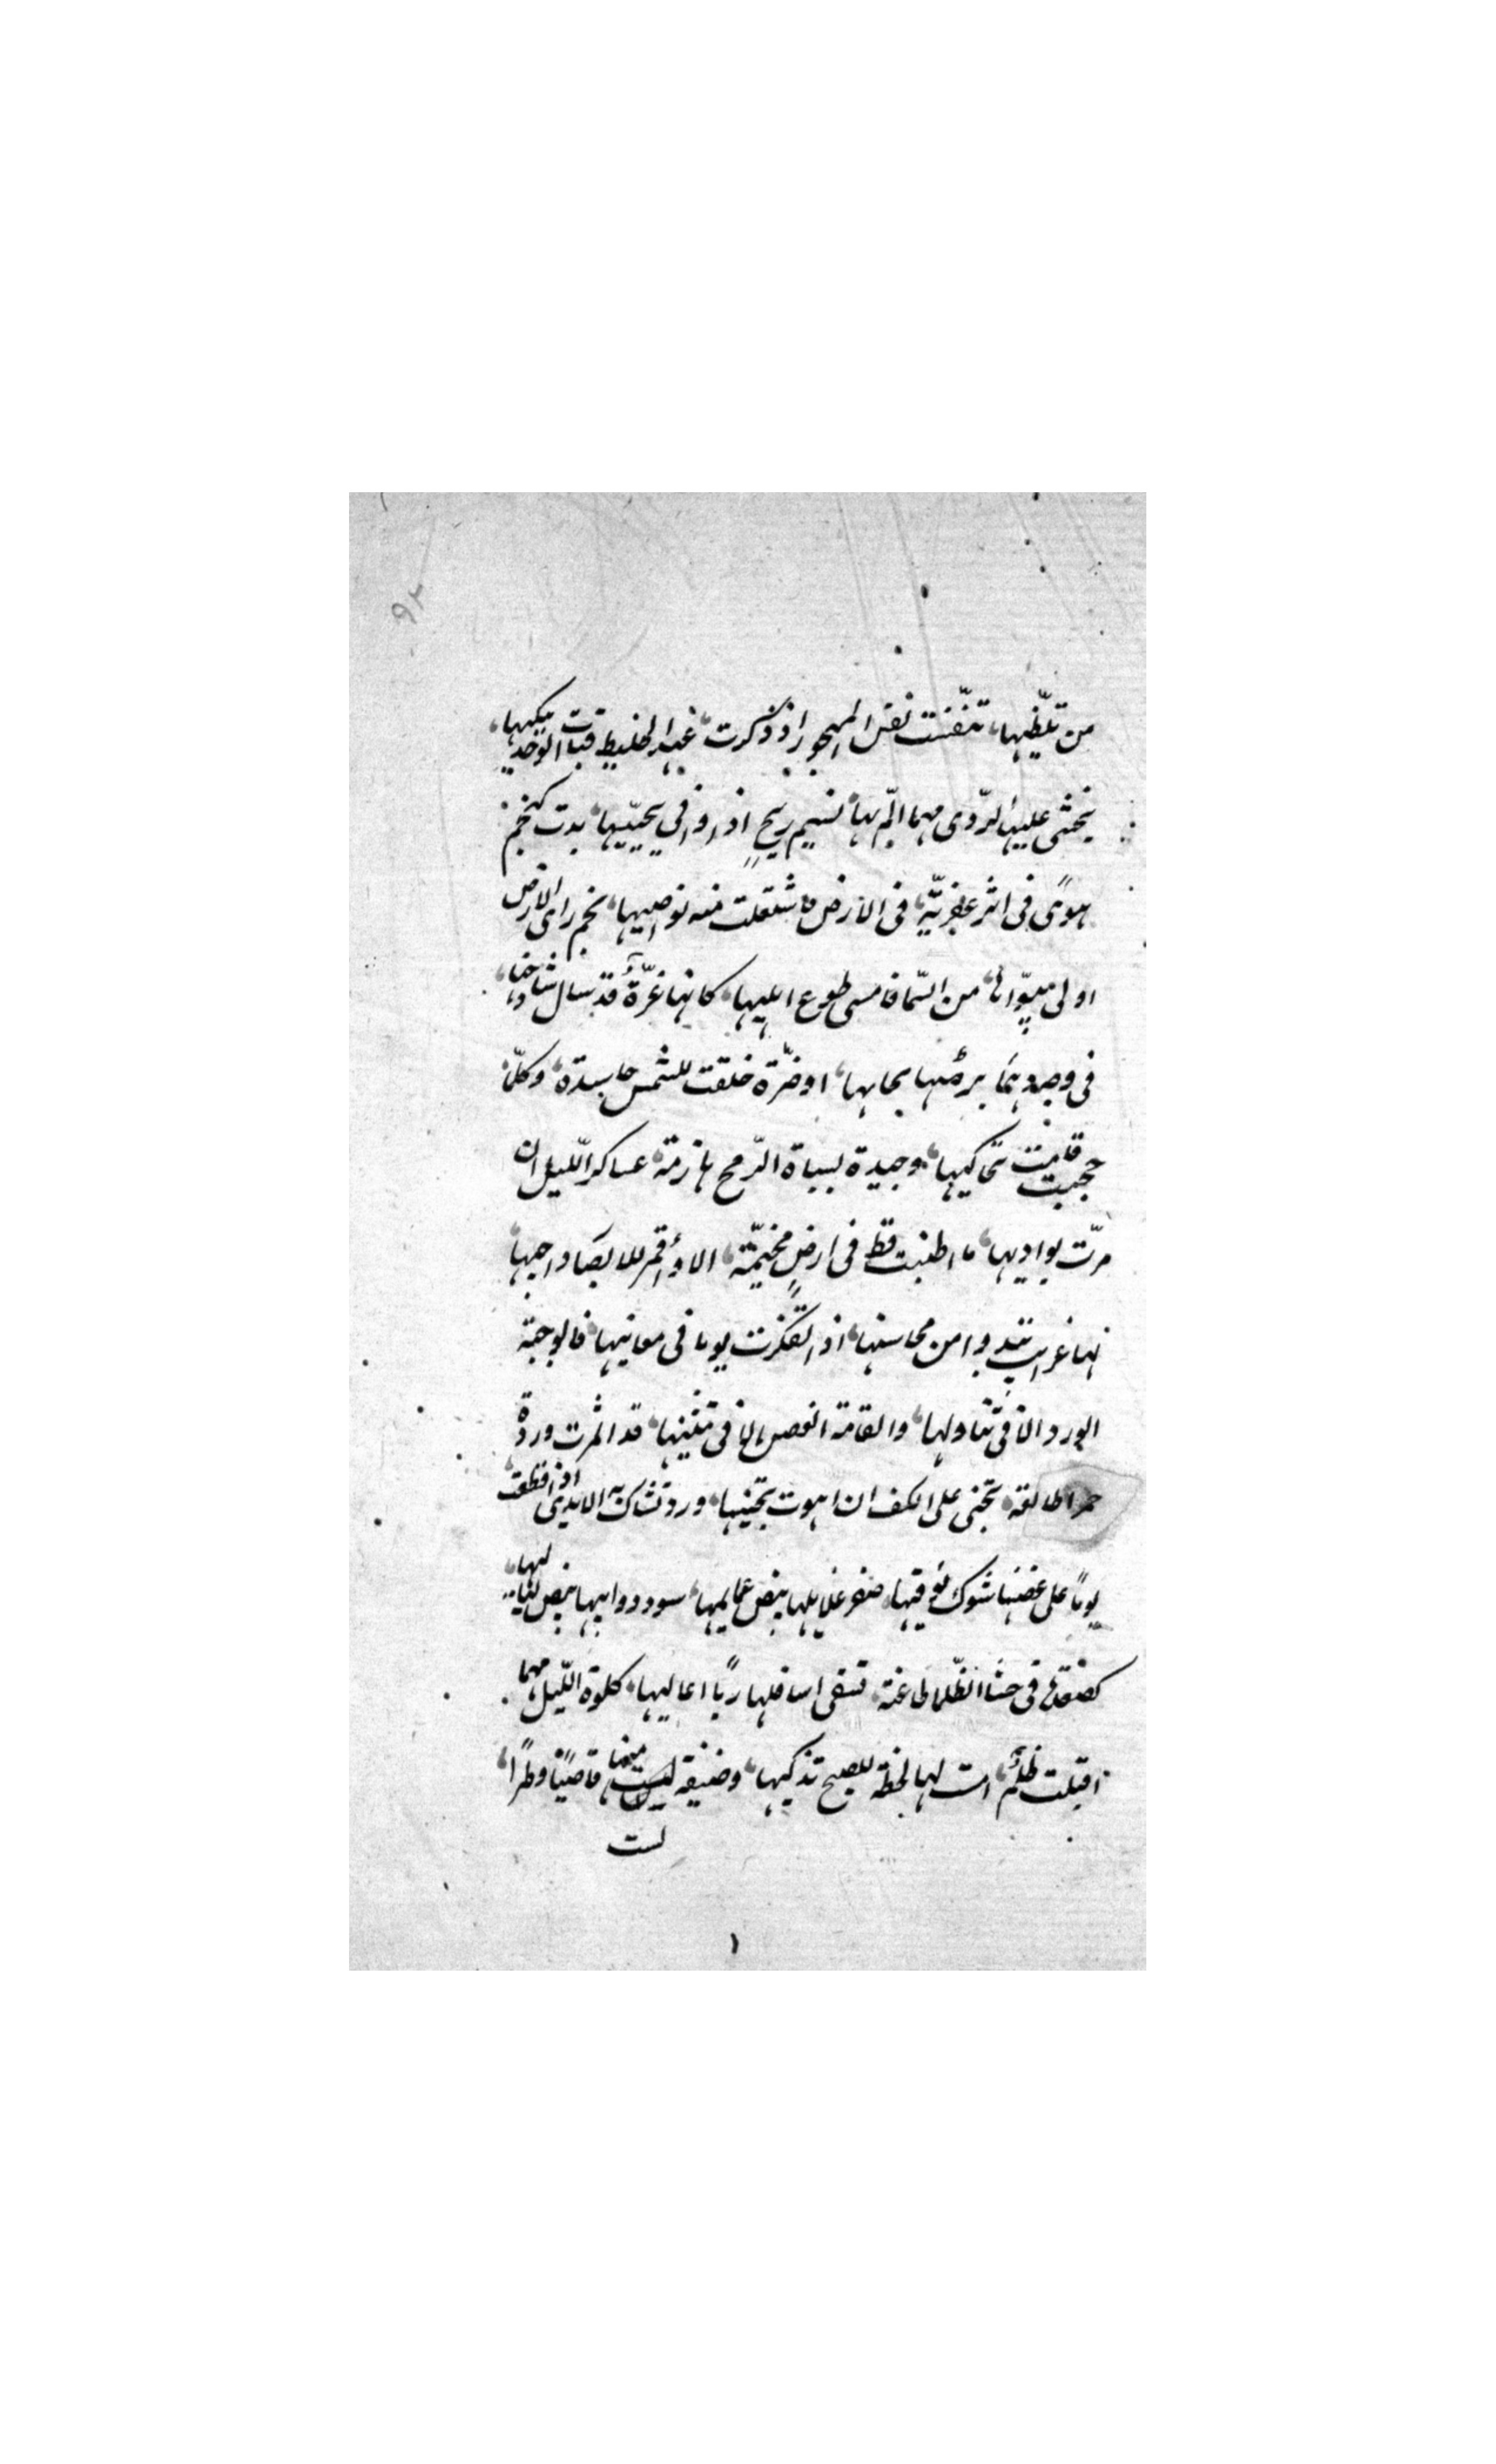 ٩٢
من تلظّيها، تنفّست نفس المهجور اذ ذكرت، عهد الخليط فبات الوجد يبكيها،
يخشى عليها الرّدى مهما المّ بها، نسيم ريحٍ اذا وافى يحيّيها، بدت كنجم
هوًى فى اثر عفريّة، فى الارض فاشتعلت منه نواصيها، نجم راى الارض
اولى مبوّا لها، من السّما فامسى طوع اهليها، كانها غرّة قد سال شادخها،
فى وجه دهما يزهيها بحاليها، او ضرّة خلقت للشمس حاسدة، وكلّما
حجبت قامت تحاكيها، وحيدة بشباة الرّمح هازمة، عساكر اللّيل ان
مرّت بواديها، ما اطنبت قط فى ارضٍ مخيّمة، الا واقمر للابصار داجيها،
لها غرايب تبدو من محاسنها، اذا تفكرت يوما فى معانيها، فالوجنة
الورد الا فى تناولها، والقامة الغصن الا فى تثنيها، قد اثمرت وردة
حمرا طالعة، تجنى على الكف ان اهوت تجنيها، ورد تشاك به الايدى اذا قطفت،
يوماً على غصنها شوك يوقيها، صفر غلايلها بيض عمايمها، سود ذوايبها بيض لياليها،
كصعدة فى حشا الظّلما طاعنة، تسقى اسافلها ريّا اعاليها، كلوة اللّيل مهما
اقبلت ظلم، امست لها لحظة للصبح تذكيها، وصيفة لست منها قاضيًا وطرًا،
لست
١